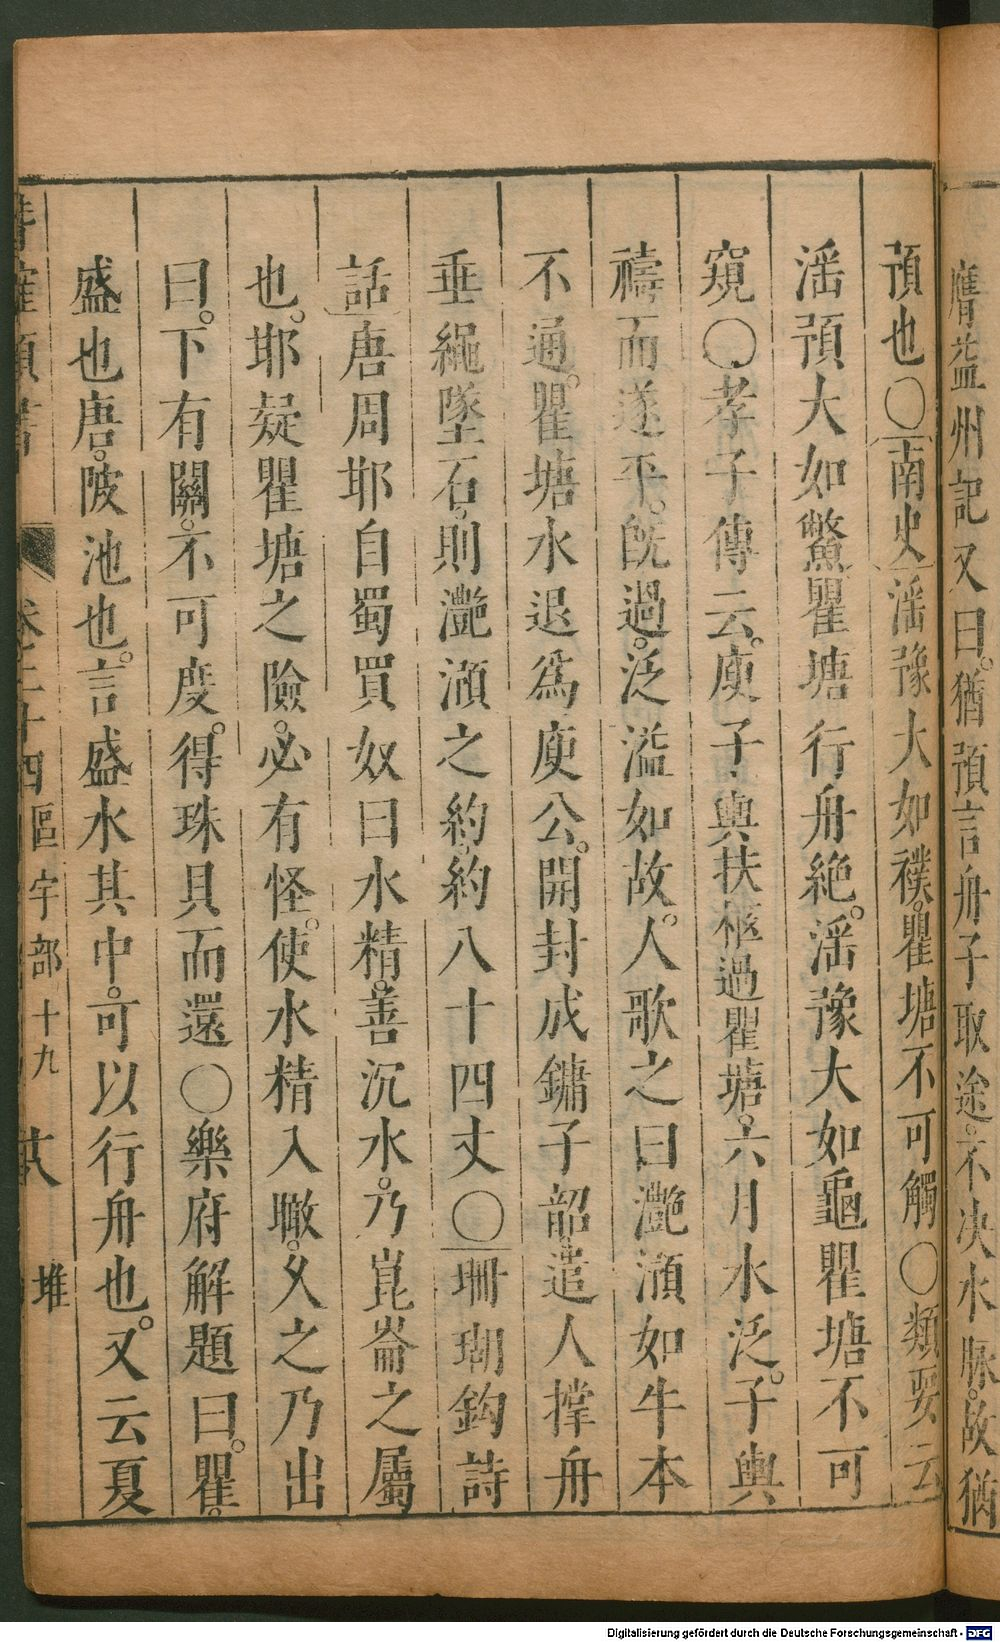 膺益州記又曰猶預言舟子取途不决水脉故猶
預也○南史滛豫大如襆瞿塘不可觸○類要云
滛預大如鱉瞿塘行舟絶滛豫大如龜瞿塘不可
窺○孝子傳云庾子輿扶柩過瞿塘六月水泛子輿
禱而遂平旣過泛溢如故人歌之曰灔澦如牛本
不通瞿塘水退爲庾公開封成鏞子韶遣人撑舟
垂繩墜石則灔澦之約約八十四丈○珊瑚鈎詩
話唐周邯自蜀買奴曰水精善沉水乃崑崙之屬
也邯疑瞿塘之險必有怪使水精入瞰久之乃出
曰下有關不可度得珠具而還○樂府解題曰瞿
盛也唐陂池也言盛水其中可以行舟也又云夏
卷二十四區宇部十九 堆
Digitalisierung gefördert durch die Deutsche Forschungsgemeinschaft - DFG